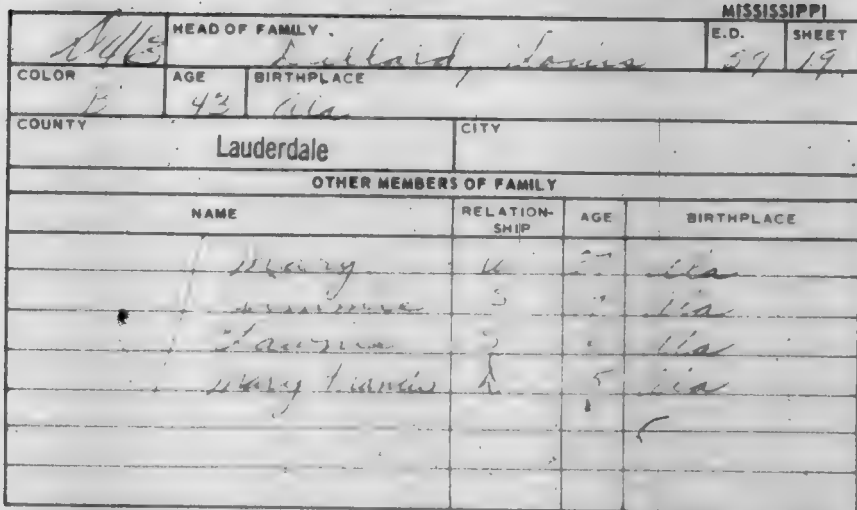 MISSISSIPPI
HEAD OF FAMILY E.D. SHEET
Dillard, Louis 59 19
COLOR AGE BIRTHPLACE
B 43 Ala
COUNTY CITY
Lauderdale
OTHER MEMBERS OF FAMILY
NAME RELATION-SHIP AGE BIRTHPLACE
Mary W Ala
S Ala
S Ala
Mary Francis D 5 Ala